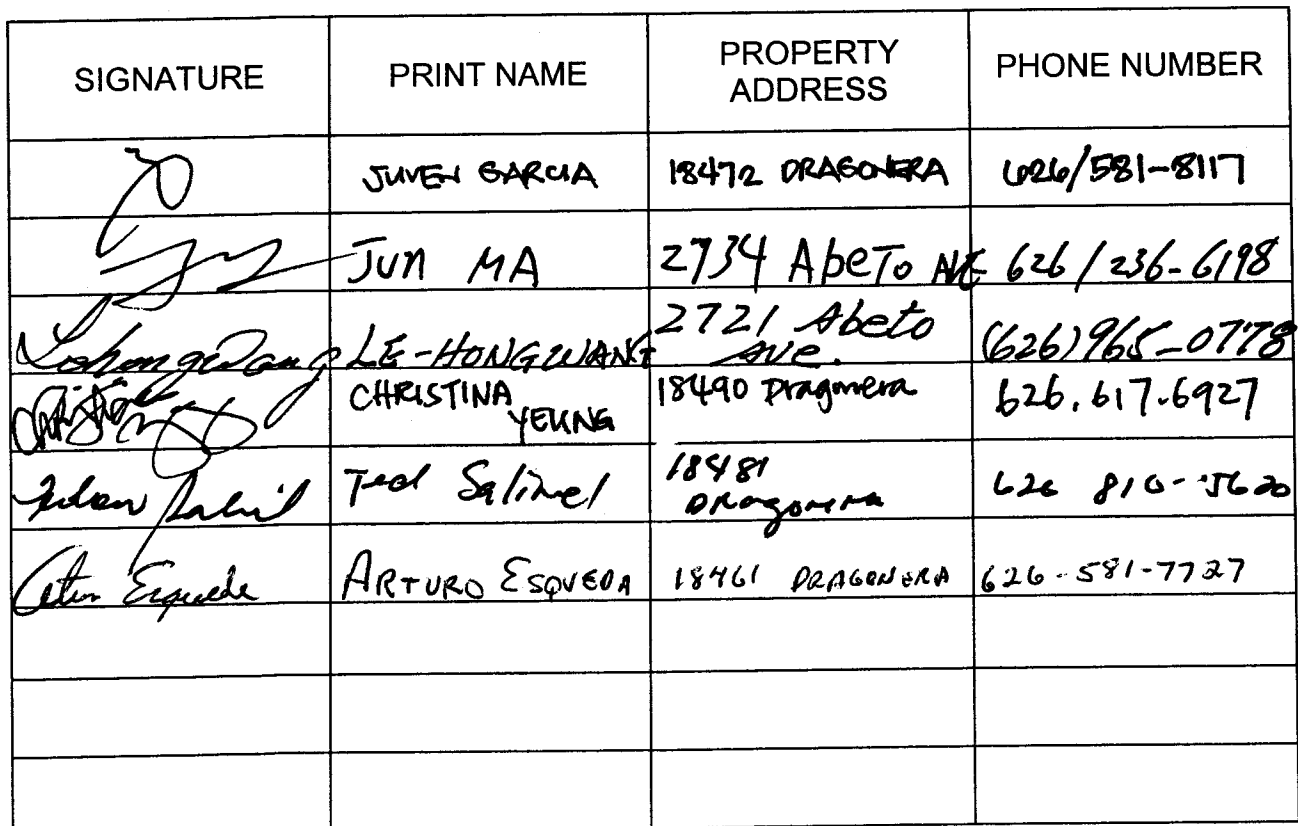 SIGNATURE PRINT NAME PROPERTY ADDRESS PHONE NUMBER
JUVEN GARCIA 18472 DRAGONERA 626/581-8117
JUN MA 2734 AbeTo AVE 626/236-6198
Lehongwang LE-HONG WANG 2721 Abeto Ave. (626)965-0778
Christina CHRISTINA YEUNG 18490 Dragonera 626.617.6927
Ted 18481 Dragonera 626 810-5620
Esqueda ARTURO ESQVEDA 18461 DRAGONERA 626-581-7727